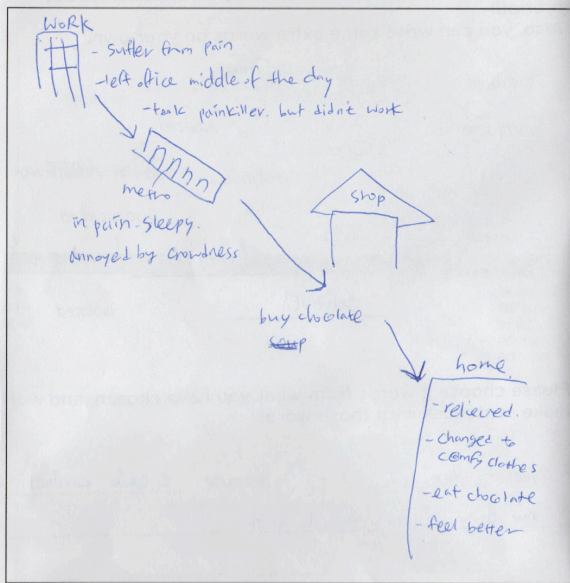 WORK
- suffer from pain
- left office middle of the day
- took painkiller. but didn't work
metro
in pain. sleepy.
annoyed by crowdness
shop
buy chocolate
home
- relieved.
- changed to
comfy clothes
- eat chocolate
- feel better